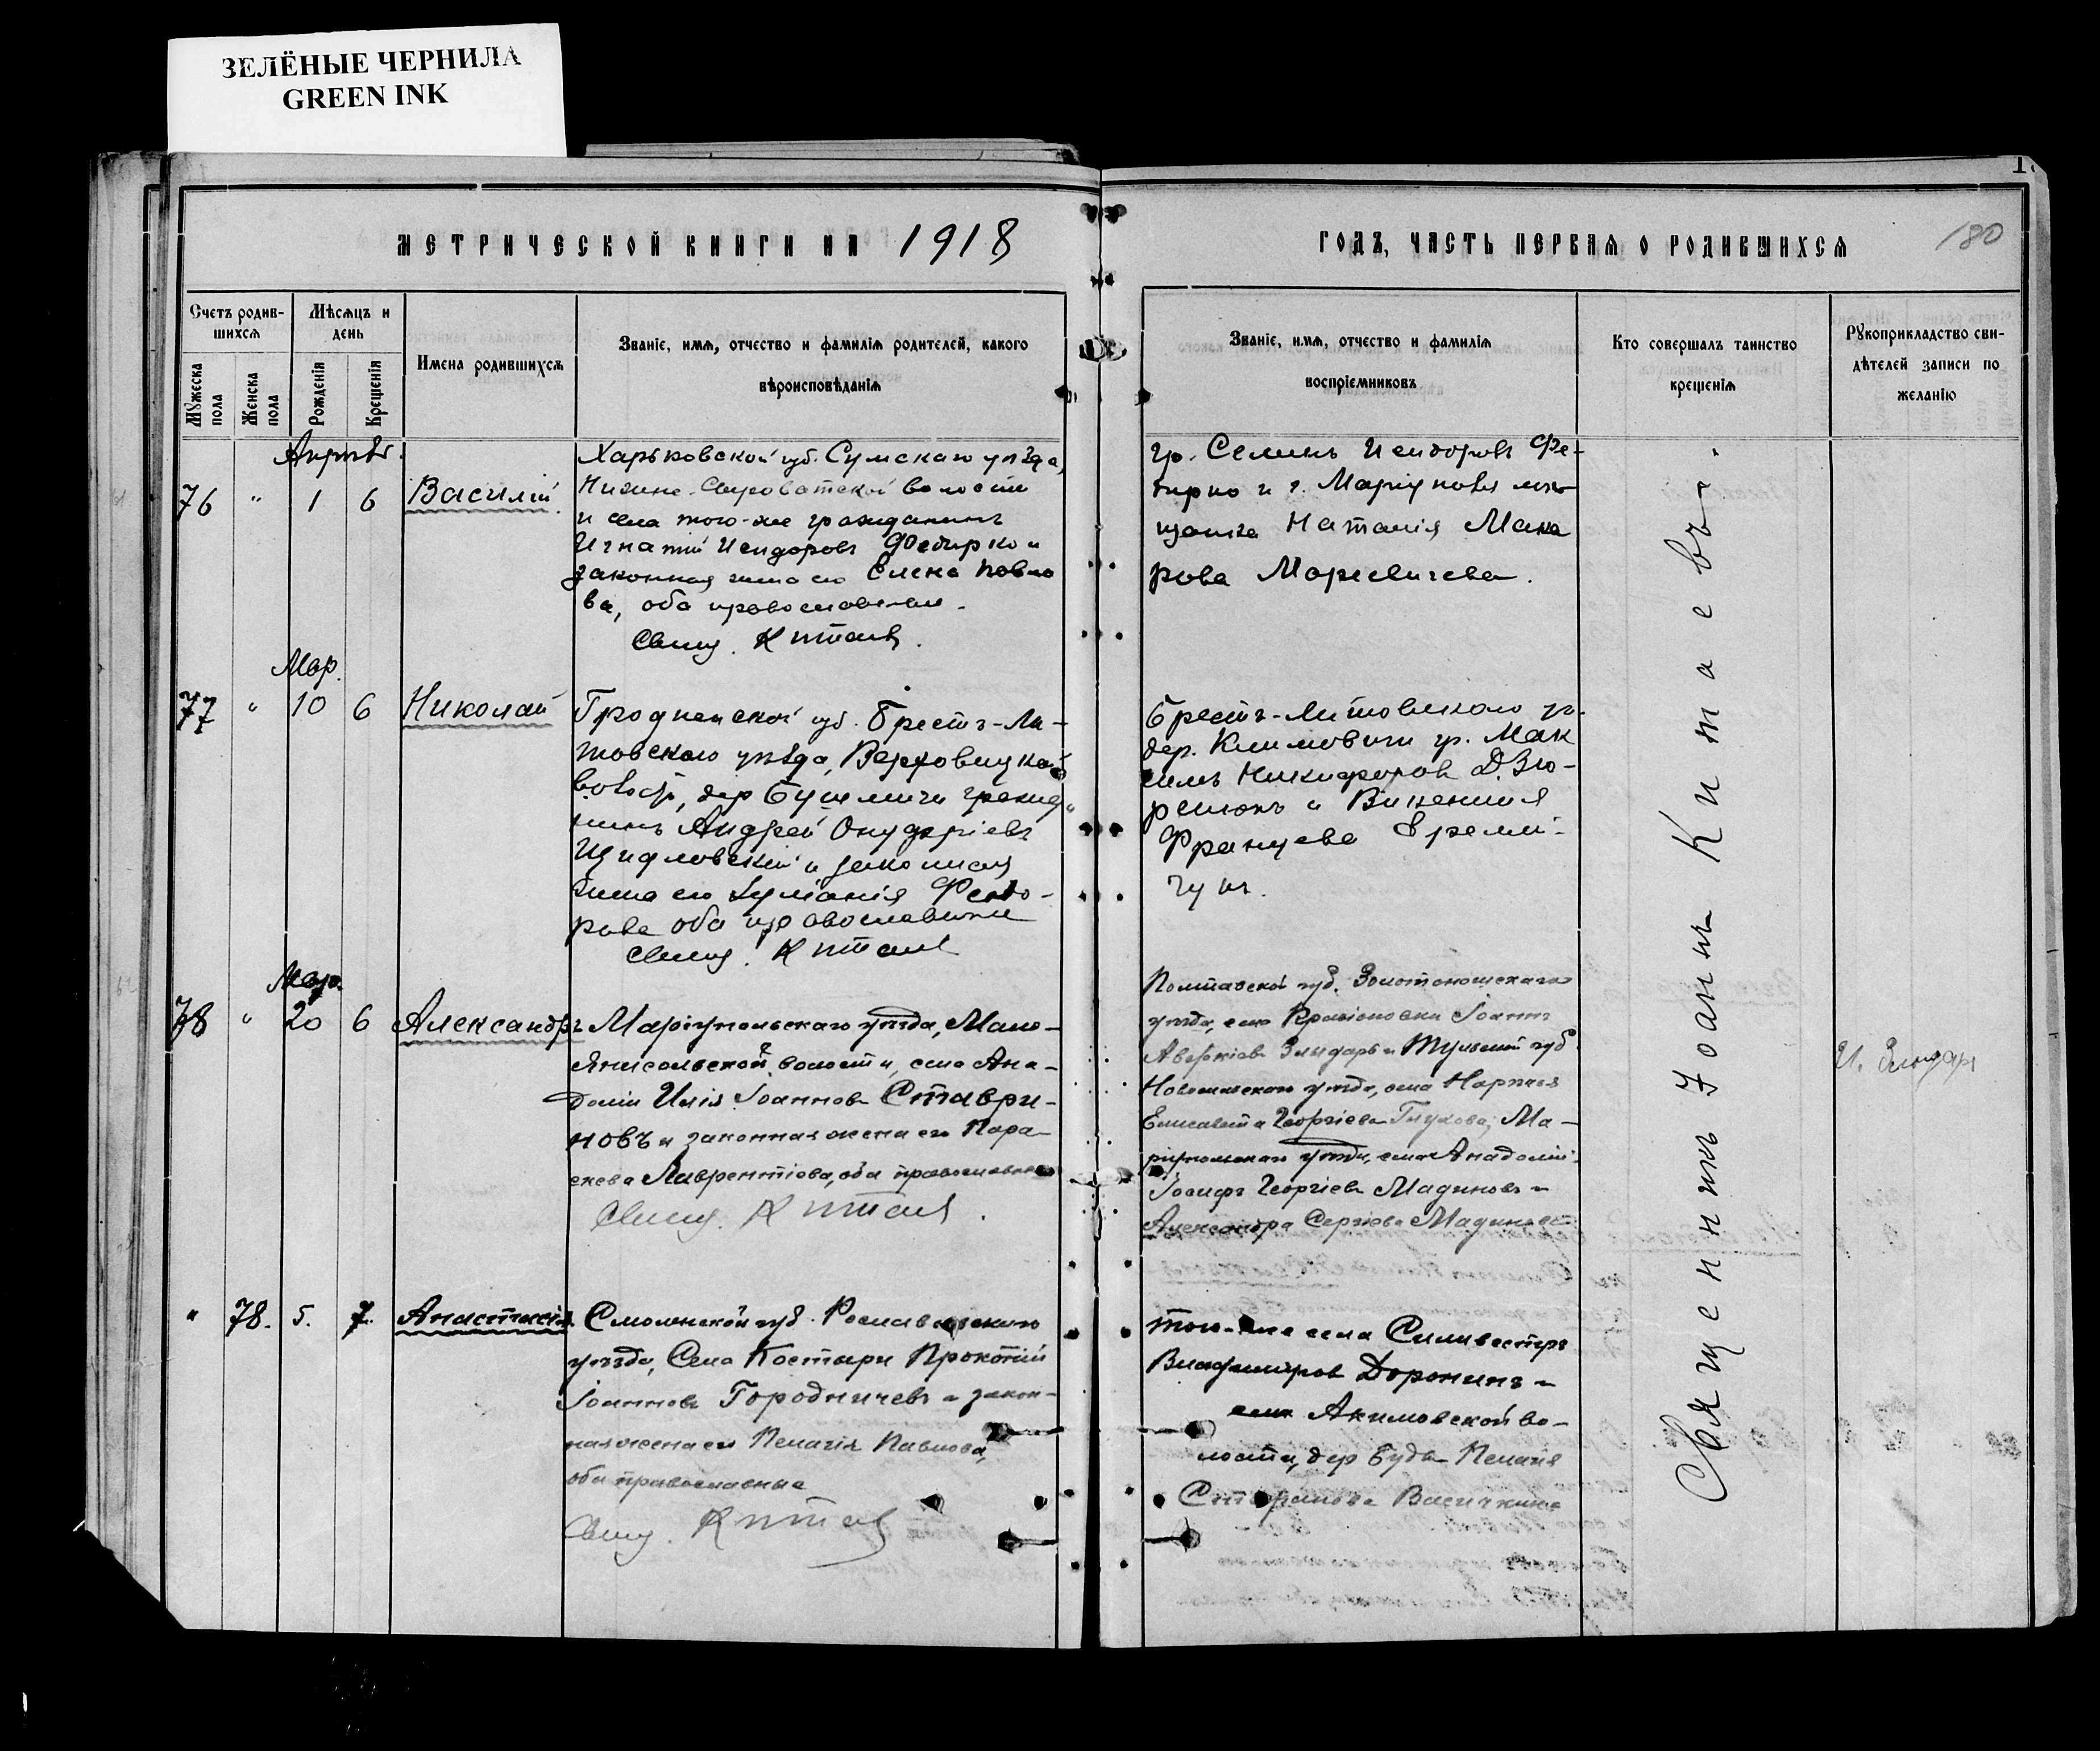 ЗЕЛЁНЫЕ ЧЕРНИЛА
GREEN INK
МЕТРИЧЕСКОЙ КНИГИ НА 1918
ГОДЪ, ЧАСТЬ ПЕРВАЯ О РОДИВШИХСЯ
180
Счетъ родив-
шихся
Мѣсяцъ и
день
Мужеска
пола
Женска
пола
Рожденія
Крещенія
Имена родившихся
Званіе, имя, отчество и фамилія родителей, какого
вѣроисповѣданія
Званіе, имя, отчество и фамилія
воспріемниковъ
Кто совершалъ таинство
крещенія
Рукоприкладство сви-
дѣтелей записи по
желанію
76 " 1 6 Василій
Харьковской губ. Сумскаго уѣзда,
Нижне-Сыроватской волости
и села того-же гражданинъ
Игнатій Исидоровъ Фетирко и
законная жена его Елена Павло
ва, оба православные.
Свящ. Китаевъ.
гр. Исидоровъ Фе-
тирко и г. Маріуполя мѣ
щанка Наталія Мака
рова
Мар.
77 " 10 6 Николай
Гродненской губ. Брестъ-Ли-
товскаго уѣзда,
волости, дер.
Андрей
и законная
жена его Ѳеодо-
рова оба православные
Свящ. Китаевъ
Брестъ-Литовскаго уѣ.
дер. Климовичи гр. Мак
симъ Никифоровъ Дзю-
и Викентія
Францева
Мар.
78 " 20 6 Александръ
Маріупольскаго уѣзда, Мало-
Янисольской волости, села Ана-
доліи Илія Іоанновъ Ставри-
новъ и законная жена его Пара
скева Лаврентіева, оба православные
Свящ. Китаевъ.
Полтавской губ. Золотоношскаго
уѣзда, села Іоаннъ
Аверкіевъ и Тульской губ.
уѣзда, села
Елисавета Георгіева Глухова; Ма-
ріупольскаго уѣзда, села Анадоліи
Іосифъ Георгіевъ Мадиновъ и
Александра Сергіева Мадинова
" 78. 5. 7. Анастасія
Смоленской губ. Рославльскаго
уѣзда, Села Костыри Прокопій
Іоанновъ Городничевъ и закон-
ная жена его Пелагія Павлова,
оба православные
Свящ. Китаевъ
того-же села Сильвестръ
Владиміровъ Доронинъ и
Акимовской во-
лости, дер. Буда Пелагія
Стефанова
Священникъ Іоаннъ Китаевъ.